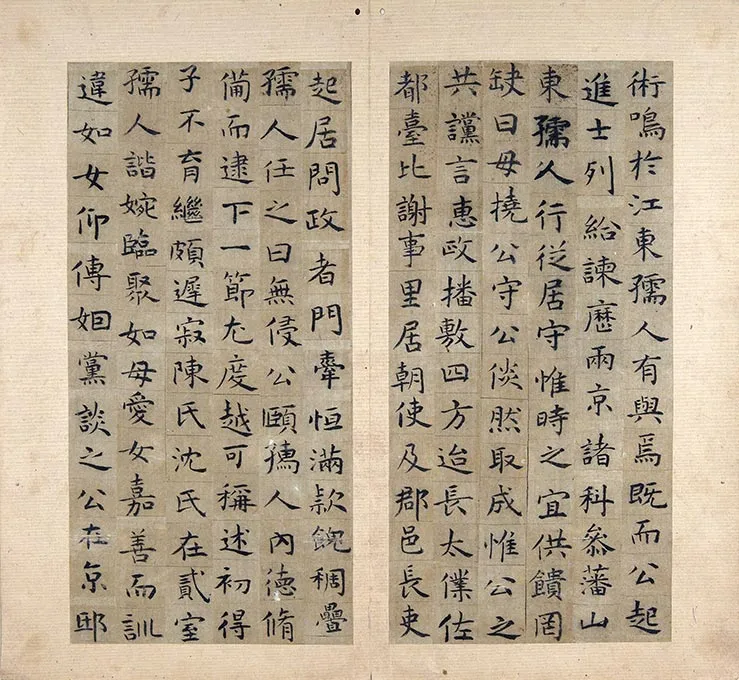 術鳴於江東孺人有與焉既而公起
進士列給諫歷兩京諸科叅藩山
東孺人行從居守惟時之宜供饋罔
缺曰毋撓公守公倓然取成惟公之
共讜言惠政播敷四方迨長太僕佐
都臺比謝事里居朝使及郡邑長吏
起居問政者門牽恒滿款餽稠疊
孺人任之曰無侵公頤孺人內德脩
備而逮下一節尤度越可稱述初得
子不育繼頗遲寂陳氏沈氏在貳室
孺人諧婉臨聚如毋愛女嘉善而訓
違如女仰傅姻黨談之公在京邸